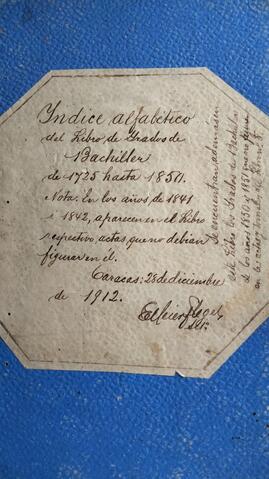 Indice alfabético
del Libro de Grados de
Bachiller
de 1725 hasta 1850.
Nota: En los años de 1841
i 1842, aparecen en el Libro
respectivo, actas que no debian
figurar en él.
Caracas: 28 de diciembre
de 1912.
Se encuentran ademas en
este Libro los Grados de Bachiller
de los años 1850 y 1851 que no figuran
en las actas